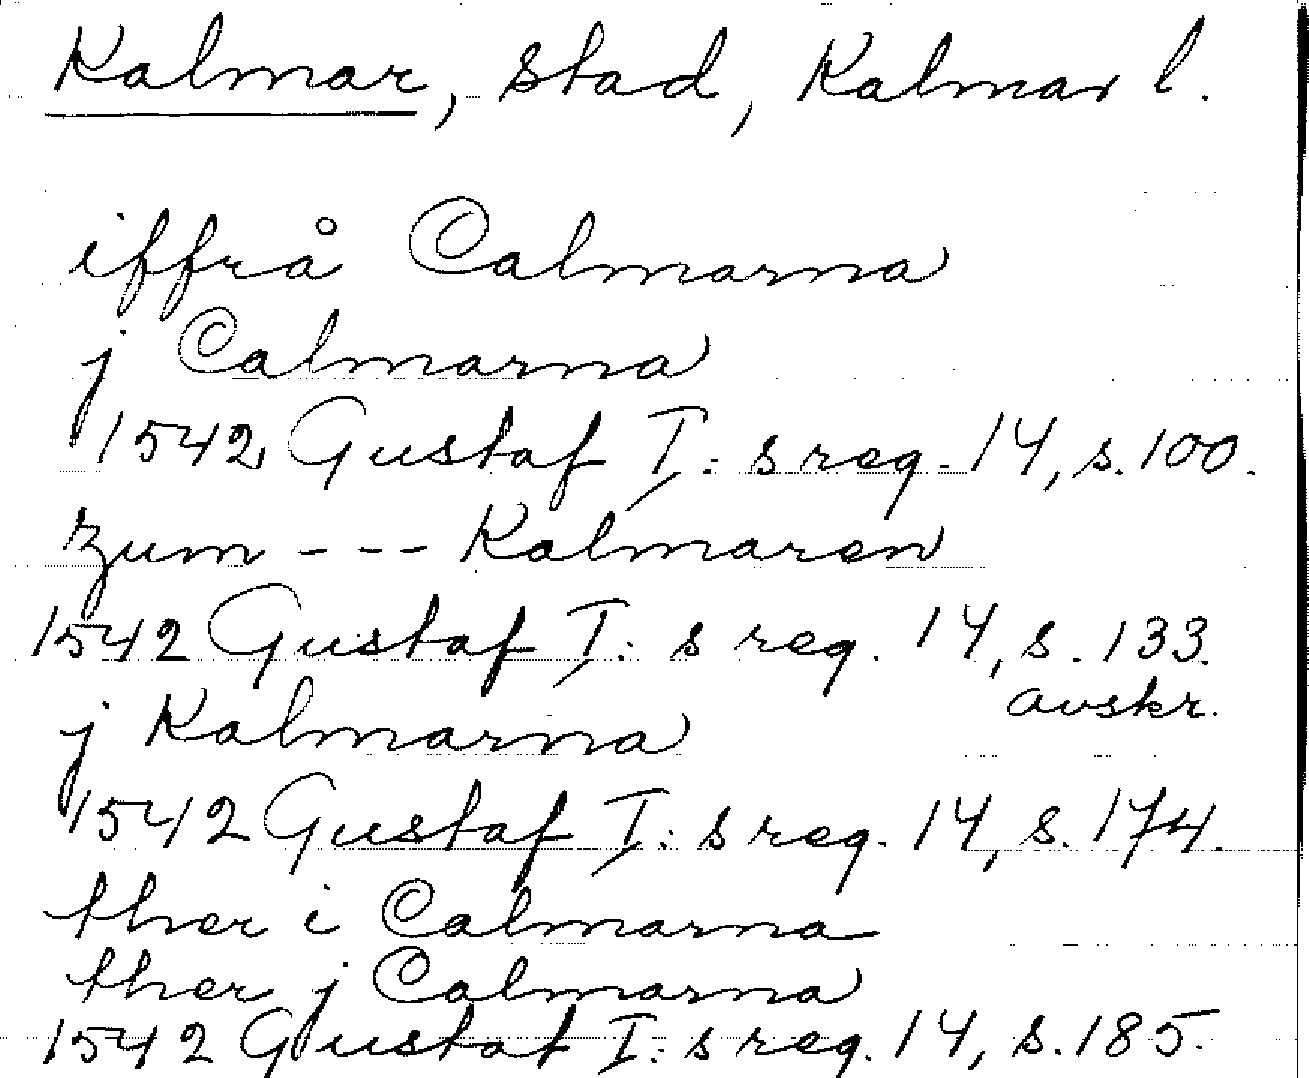 Kalmar, stad, Kalmar l.
iffrå Calmarna
j Calmarna
1542 Gustaf I:s reg. 14, s. 100.
zum --- Kalmaren
1542 Gustaf I:s reg. 14, s. 133.
avskr.
j Kalmarna
1542 Gustaf I:s reg. 14, s. 174.
ther i Calmarna
ther j Calmarna
1542 Gustaf I:s reg. 14, s. 185.